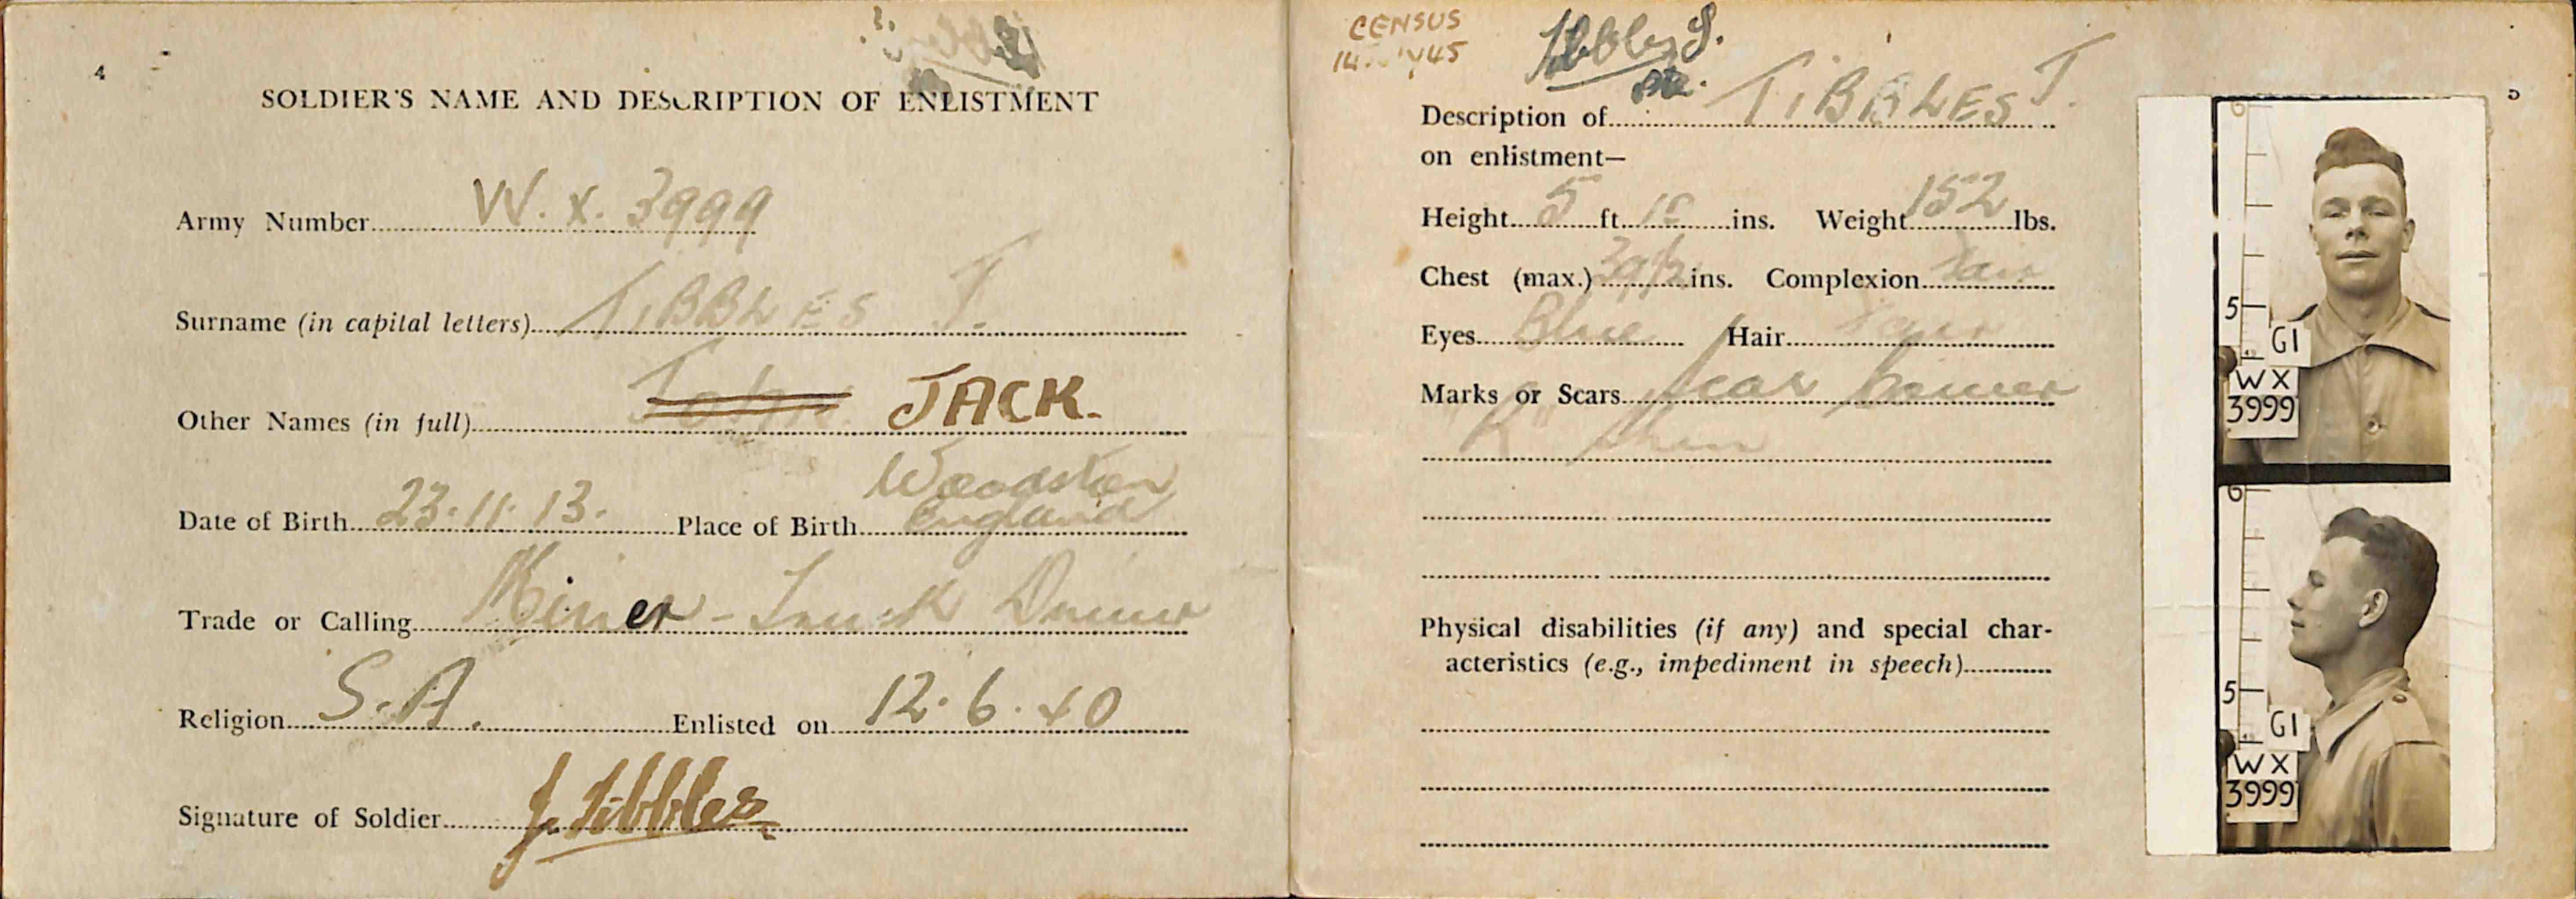 4
SOLDIER'S NAME AND DESCRIPTION OF ENLISTMENT
Army Number W. X. 3999
Surname (in capital letters) TIBBLES J.
Other Names (in full) John JACK.
Date of Birth 23.11.13. Place of Birth Woodston England
Trade or Calling Miner - Truck Driver
Religion S.A. Enlisted on 12.6.40
Signature of Soldier J. Tibbles
CENSUS
Tibbles J.
Pte.
Description of TIBBLES J.
on enlistment—
Height 5 ft. 10 ins. Weight 152 lbs.
Chest (max.) 39½ ins. Complexion Fair
Eyes Blue Hair Fair
Marks or Scars Scar Lower
R Shin
Physical disabilities (if any) and special char-
acteristics (e.g., impediment in speech)
6
5
G1
WX
3999
6
5
G1
WX
3999